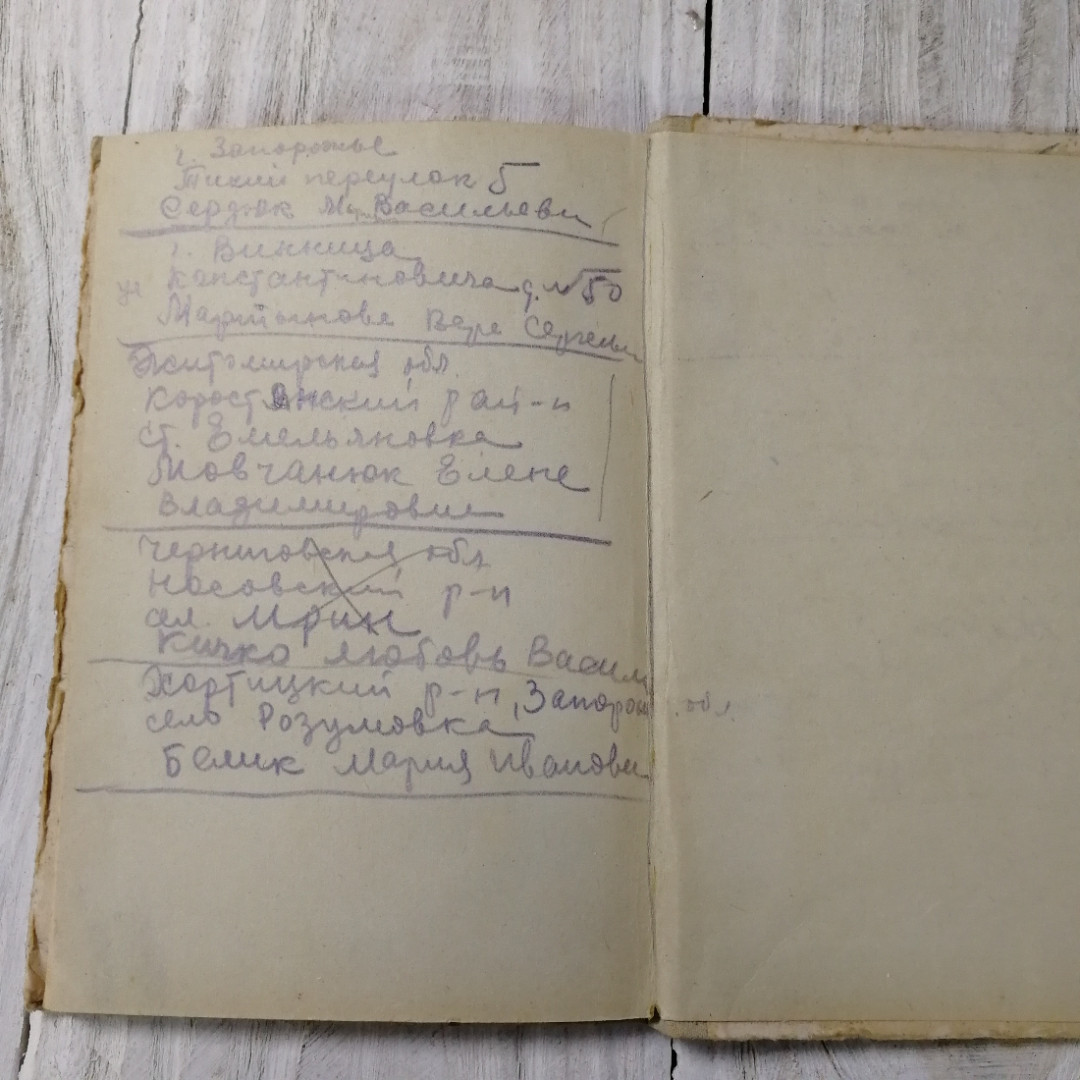 г. Запорожье
Тихий переулок 5
Сердюк М. Васильевн
г. Винница
ул Константиновича д. № 50
Мартынова Вера Сергеевн
Житомирская обл.
Коростянский рай-н
ст. Емельяновка
Мовчанюк Елене
Владимировне
Черниговская обл.
Носовский р-н
сел. Мрин
Кичко Любовь Васил
Хортицкий р-н, Запорож. обл.
село Розумовка
Белик Мария Ивановн